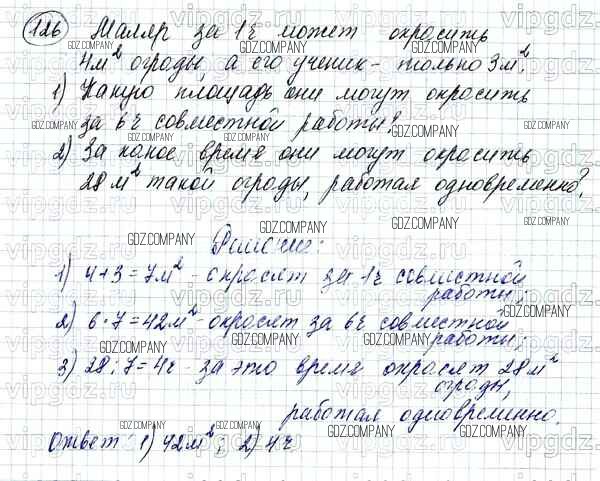 126 Маляр за 1ч может окрасить
4м² ограды, а его ученик - только 3м².
1) Какую площадь они могут окрасить
за 6ч совместной работы?
2) За какое время они могут окрасить
28м² такой ограды, работая одновременно?
Решение:
1) 4+3=7м² - окрасят за 1ч совместной
работы;
2) 6·7=42м² - окрасят за 6ч совместной
работы;
3) 28:7=4ч - за это время окрасят 28м²
ограды,
работая одновременно.
Ответ: 1) 42м²; 2) 4ч
GDZ.COMPANY
vipgdz.ru